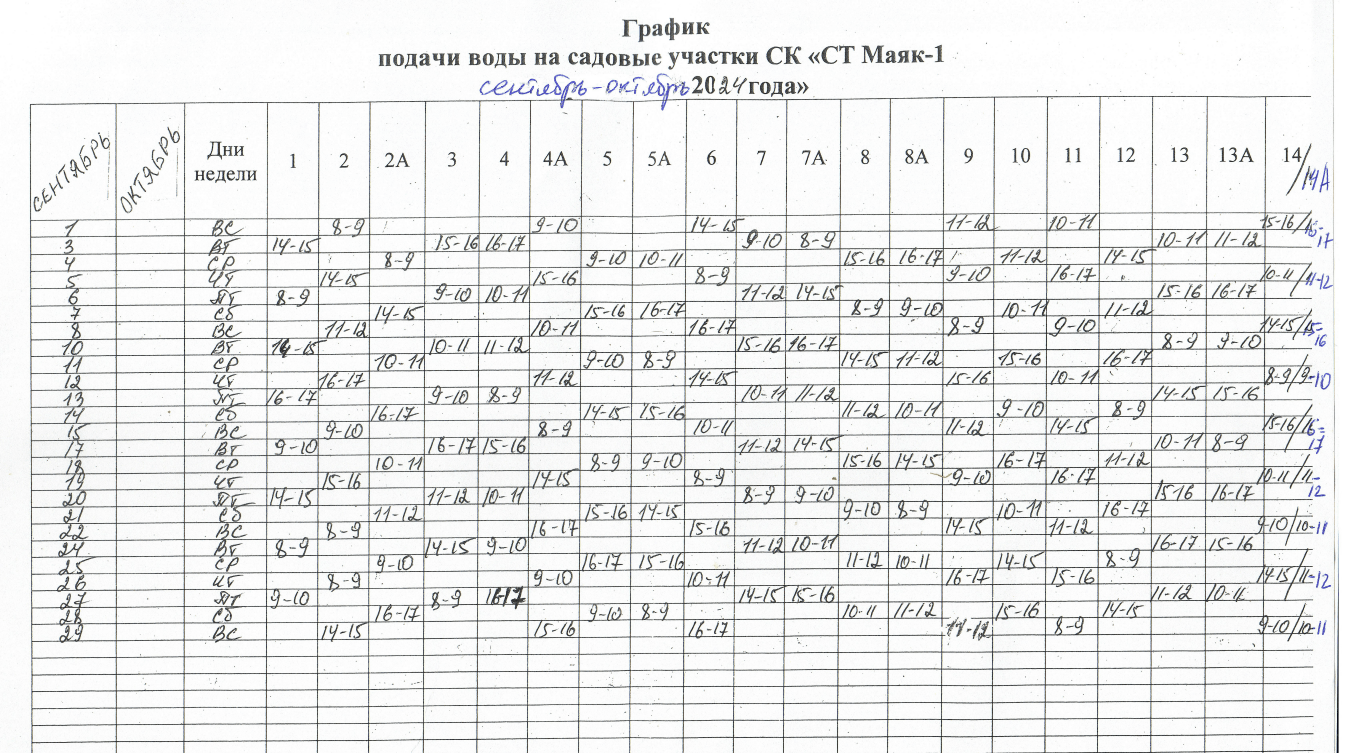 График
подачи воды на садовые участки СК «СТ Маяк-1
сентябрь-октябрь 2024 года»
СЕНТЯБРЬ ОКТЯБРЬ Дни недели 1 2 2А 3 4 4А 5 5А 6 7 7А 8 8А 9 10 11 12 13 13А 14/14А
1 ВС 8-9 9-10 14-15 11-12 10-11 15-16/16-17
3 ВТ 14-15 15-16 16-17 9-10 8-9 10-11 11-12
4 СР 8-9 9-10 10-11 15-16 16-17 11-12 14-15
5 ЧТ 14-15 15-16 8-9 9-10 16-17 10-11/11-12
6 ПТ 8-9 9-10 10-11 11-12 14-15 15-16 16-17
7 Сб 14-15 15-16 16-17 8-9 9-10 10-11 11-12
8 ВС 11-12 10-11 16-17 8-9 9-10 14-15/15-16
10 ВТ 14-15 10-11 11-12 15-16 16-17 8-9 9-10
11 СР 10-11 9-10 8-9 14-15 11-12 15-16 16-17
12 ЧТ 16-17 11-12 14-15 15-16 10-11 8-9/9-10
13 ПТ 16-17 9-10 8-9 10-11 11-12 14-15 15-16
14 Сб 16-17 14-15 15-16 11-12 10-11 9-10 8-9
15 ВС 9-10 8-9 10-11 11-12 14-15 15-16/16-17
17 ВТ 9-10 16-17 15-16 11-12 14-15 10-11 8-9
18 СР 10-11 8-9 9-10 15-16 14-15 16-17 11-12
19 ЧТ 15-16 14-15 8-9 9-10 16-17 10-11/11-12
20 ПТ 14-15 11-12 10-11 8-9 9-10 15-16 16-17
21 Сб 11-12 15-16 14-15 9-10 8-9 10-11 16-17
22 ВС 8-9 16-17 15-16 14-15 11-12 9-10/10-11
24 ВТ 8-9 14-15 9-10 11-12 10-11 16-17 15-16
25 СР 9-10 16-17 15-16 11-12 10-11 14-15 8-9
26 ЧТ 8-9 9-10 10-11 16-17 15-16 14-15/11-12
27 ПТ 9-10 8-9 16-17 14-15 15-16 11-12 10-11
28 Сб 16-17 9-10 8-9 10-11 11-12 15-16 14-15
29 ВС 14-15 15-16 16-17 11-12 8-9 9-10/10-11